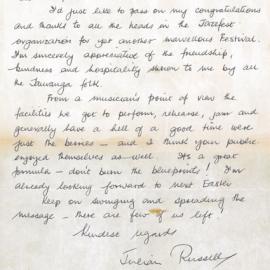 I'd just like to pass on my congratulations
and thanks to all the heads in the Jazzfest
organization for yet another marvellous Festival.
I'm sincerely appreciative of the friendship,
kindness and hospitality shown to me by all
the Tauranga folk.
From a musician's point of view the
facilities he got to perform, rehearse, jam and
generally have a hell of a good time were
just the besies - and I think your public
enjoyed themselves as-well. It's a great
formula - don't burn the blueprints! I'm
already looking forward to next Easter
Keep on swinging and spreading the
message - there are few of us left!
Kindest regards
Julian Russell